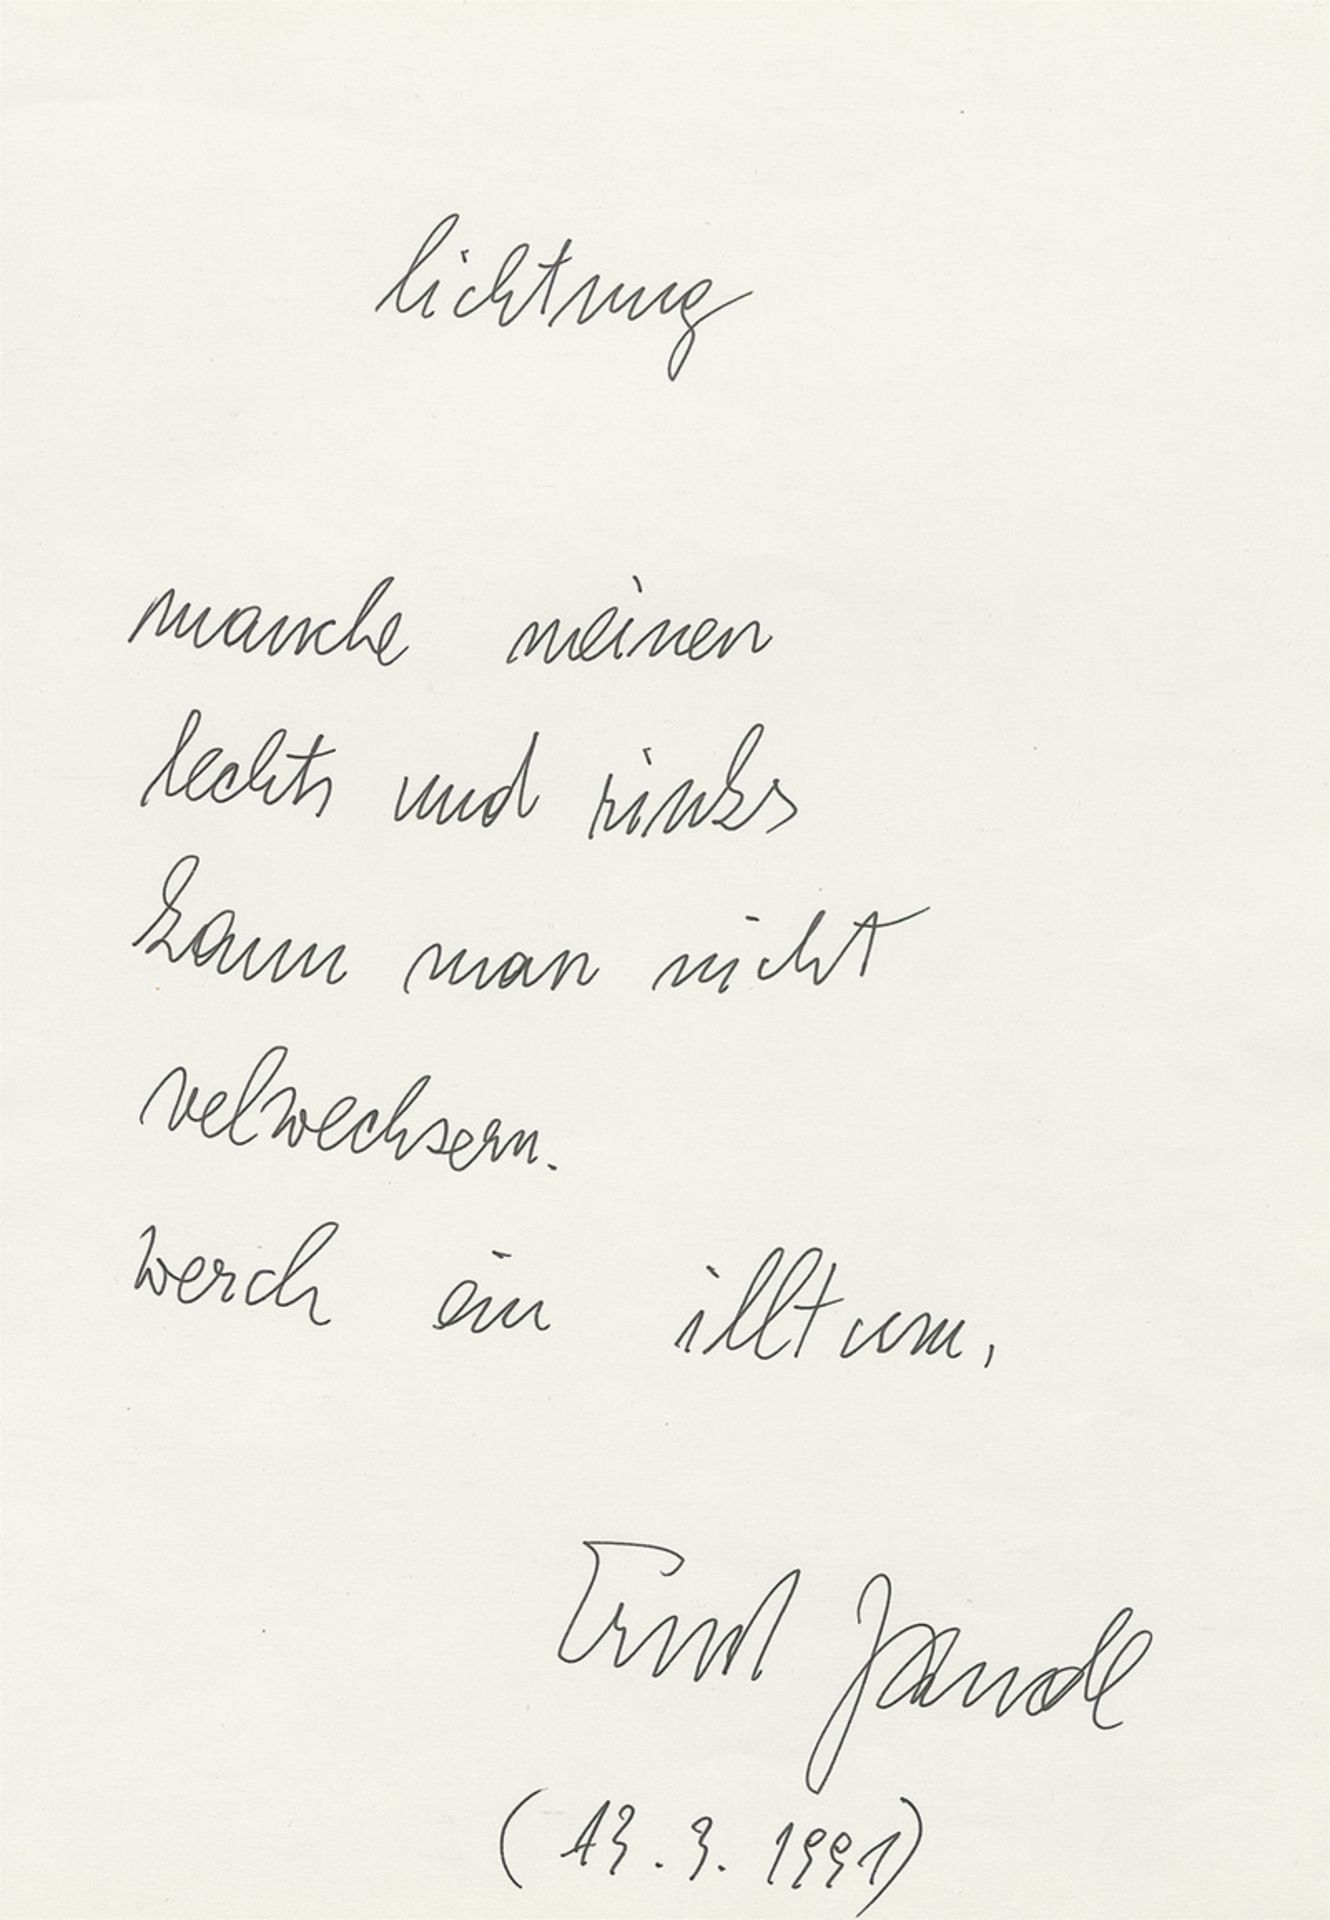 lichtung
manche meinen
lechts und rinks
kann man nicht
velwechsern.
werch ein illtum.
Ernst Jandl
(13.3.1991)